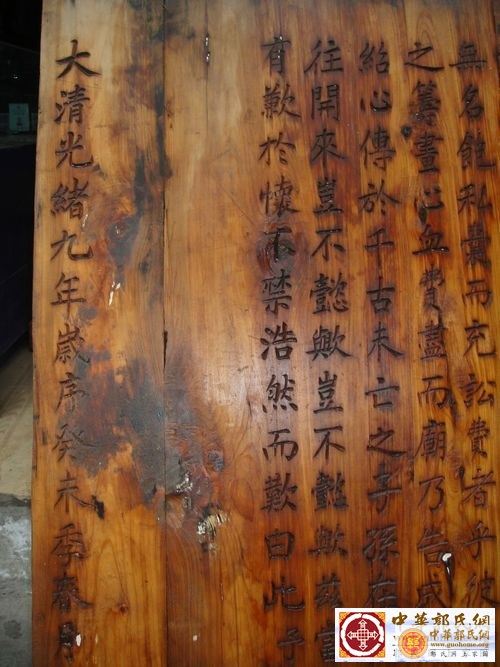 無名飽私囊而充訟費者乎彼
之籌畫心血費盡而廟乃告成
紹心傳於千古未亡之子孫在
往開來豈不懿歟豈不懿歟茲
有歉於懷不禁浩然而歎曰此
大清光緒九年歲序癸未季春月
中華郭氏網
中華郭氏網
www.guohome.org